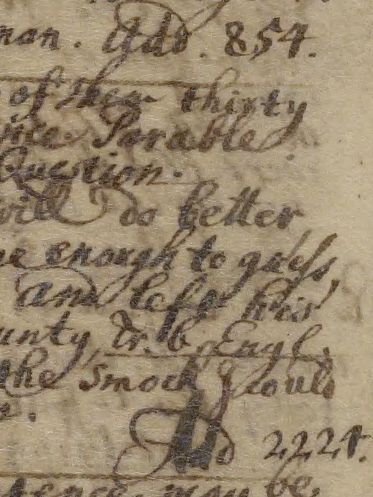 man. Add. 854.
of their thirty
Parable
Question.
will do better,
me enough to guess,
and left his
unty, &r. b. Engl.
the Smock &ould
Add 2224.
tence may be